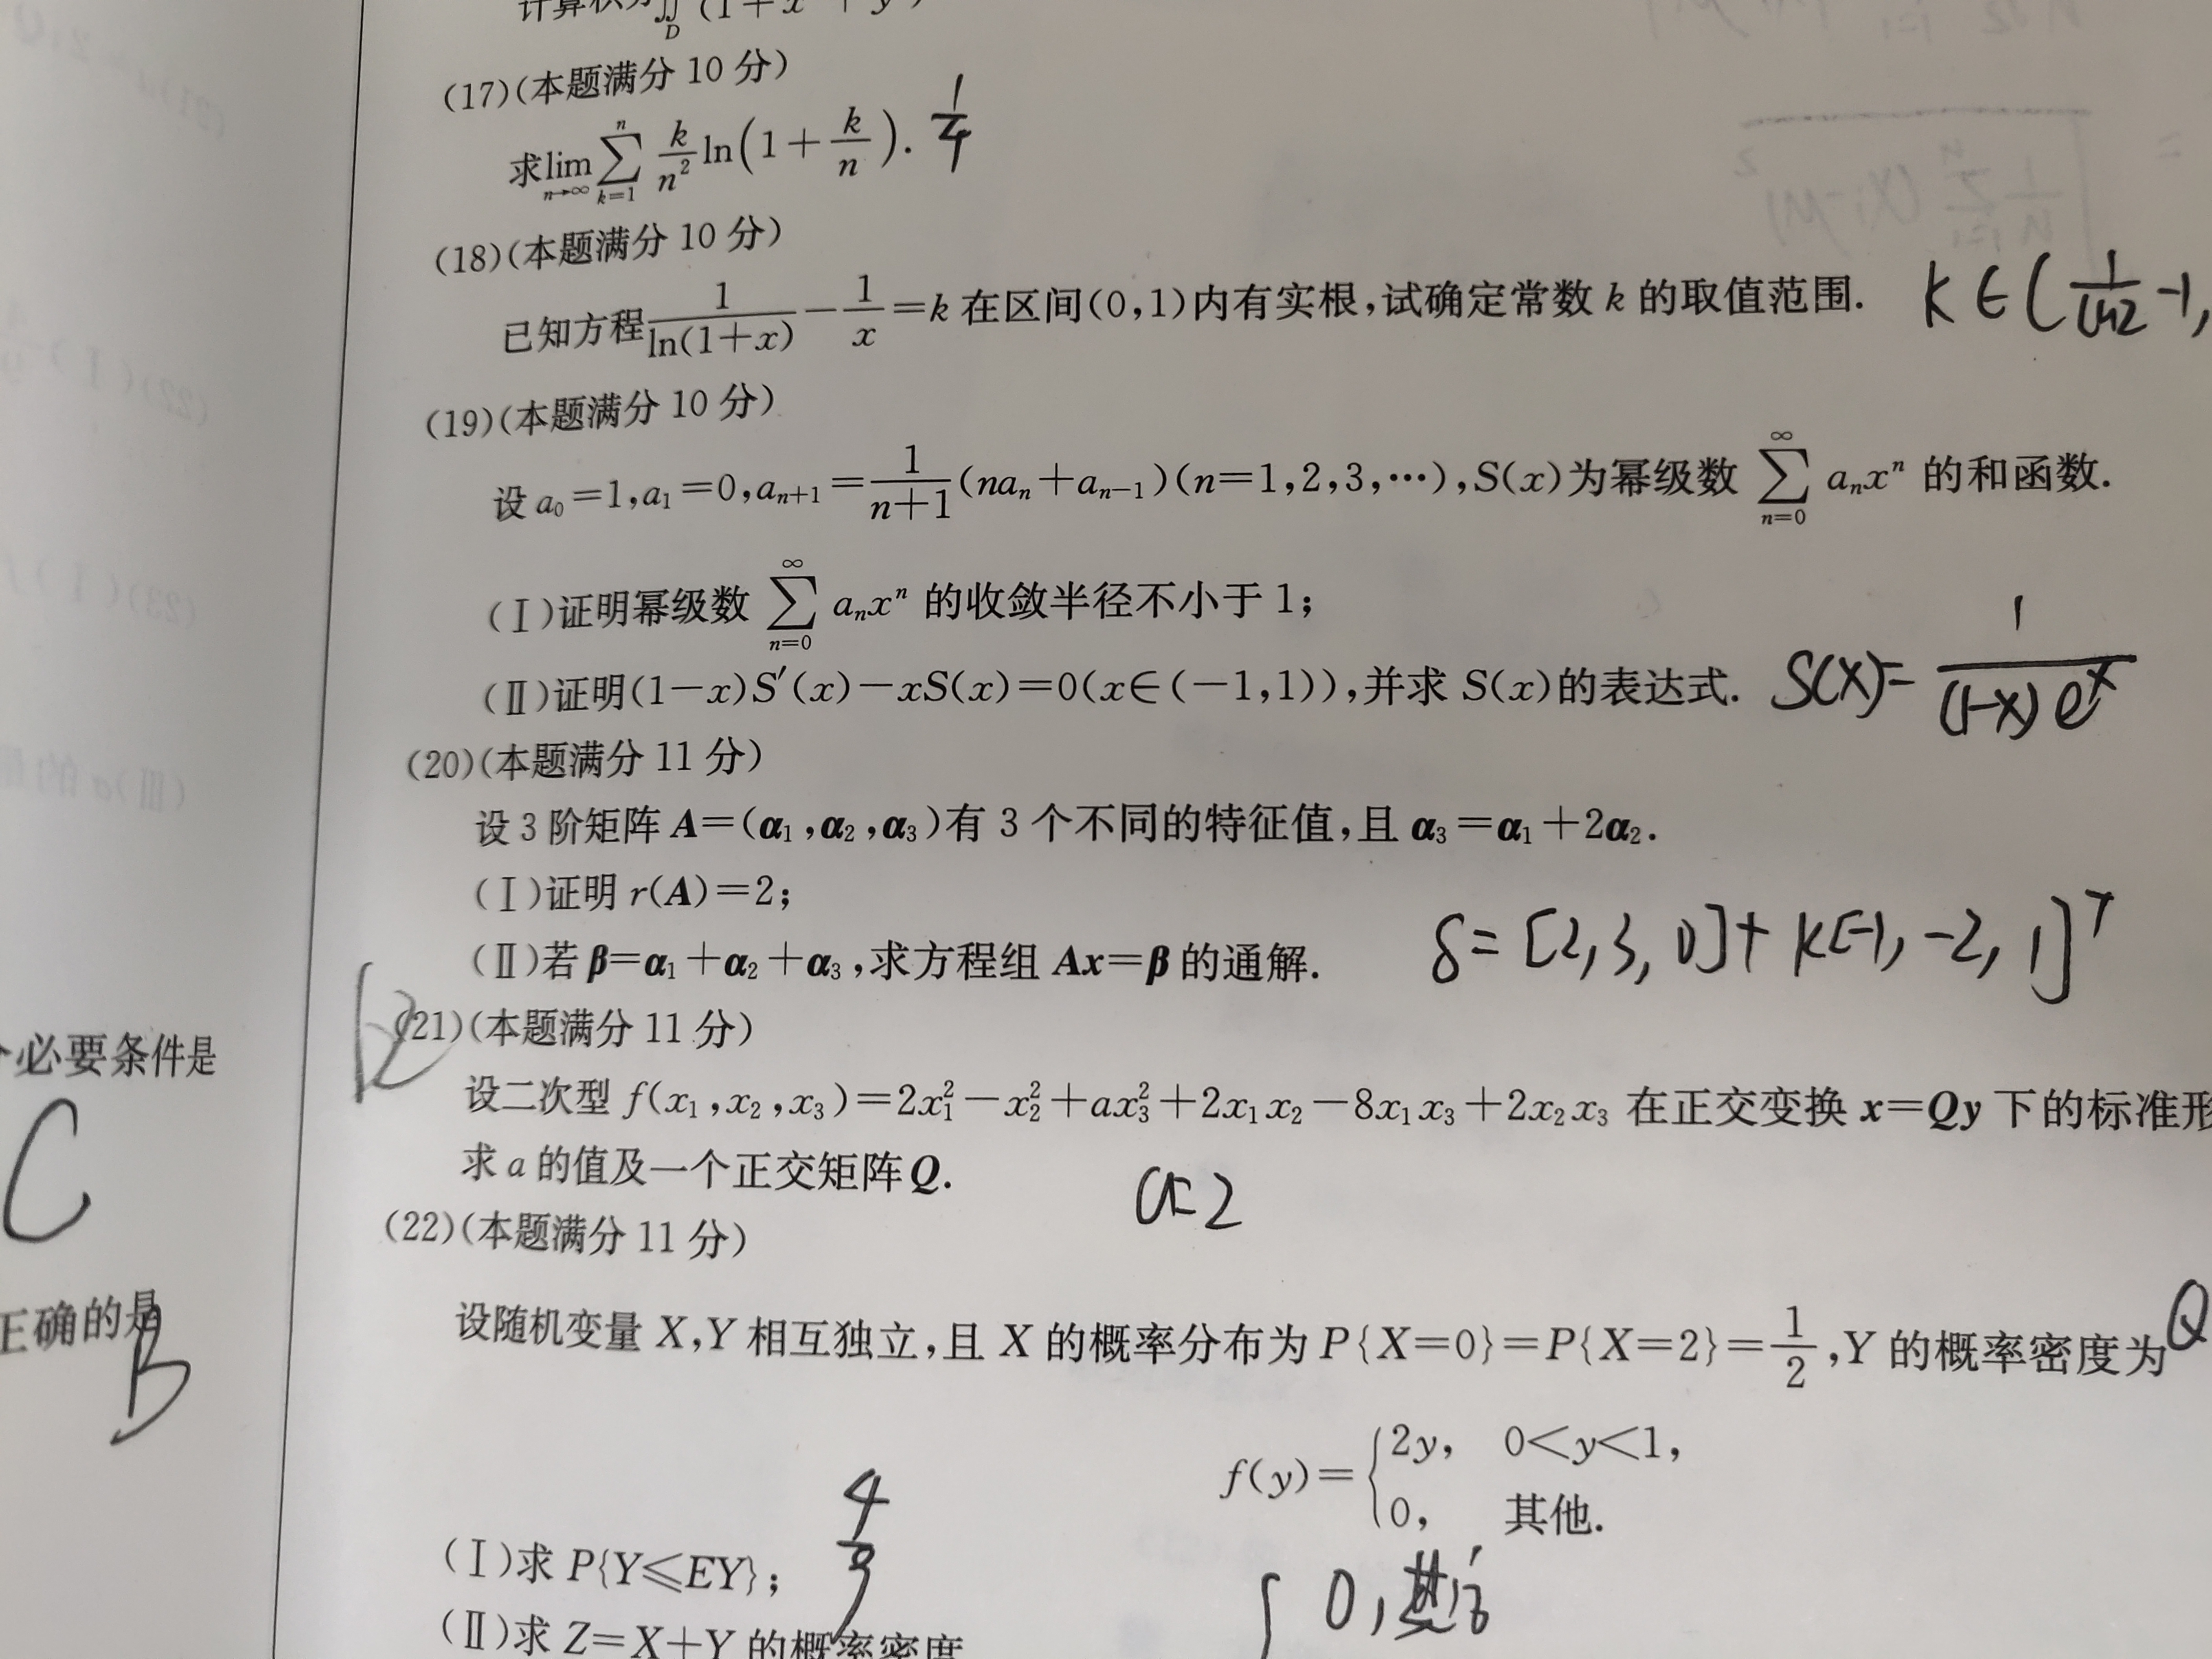 计算积分∬_D (1+x + y )
(17)(本题满分 10 分)
求lim_{n→∞} ∑_{k=1}^{n} k/n² ln(1+k/n). 1/4
(18)(本题满分 10 分)
已知方程 1/ln(1+x) − 1/x = k 在区间(0,1)内有实根,试确定常数 k 的取值范围. k∈(1/ln2 -1,
(19)(本题满分 10 分)
设 a₀=1,a₁=0,aₙ₊₁= 1/(n+1) (naₙ+aₙ₋₁)(n=1,2,3,…),S(x)为幂级数 ∑_{n=0}^{∞} aₙxⁿ 的和函数.
(Ⅰ)证明幂级数 ∑_{n=0}^{∞} aₙxⁿ 的收敛半径不小于 1;
(Ⅱ)证明(1−x)S′(x)−xS(x)=0(x∈(−1,1)),并求 S(x)的表达式. S(x)= 1/((1-x)eˣ)
(20)(本题满分 11 分)
设 3 阶矩阵 A=(α₁,α₂,α₃)有 3 个不同的特征值,且 α₃=α₁+2α₂.
(Ⅰ)证明 r(A)=2;
(Ⅱ)若 β=α₁+α₂+α₃,求方程组 Ax=β 的通解. δ=[2,3,0]+k[-1,-2,1]ᵀ
(21)(本题满分 11 分)
设二次型 f(x₁,x₂,x₃)=2x₁²−x₂²+ax₃²+2x₁x₂−8x₁x₃+2x₂x₃ 在正交变换 x=Qy 下的标准形
求 a 的值及一个正交矩阵 Q.
a=2
(22)(本题满分 11 分)
设随机变量 X,Y 相互独立,且 X 的概率分布为 P{X=0}=P{X=2}=1/2,Y 的概率密度为
Q
f(y)={2y, 0<y<1,
0, 其他.
(Ⅰ)求 P{Y≤EY}; 4/9
0,其他
(Ⅱ)求 Z=X+Y 的概率密度
必要条件是
C
正确的是
B